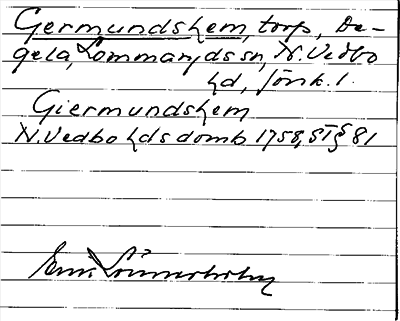 Germundshem, torp, De-
gela, Lommaryds sn, N. Vedbo
hd, Jönk. l.
Giermundshem
N. Vedbo hds domb 1758, ST § 81